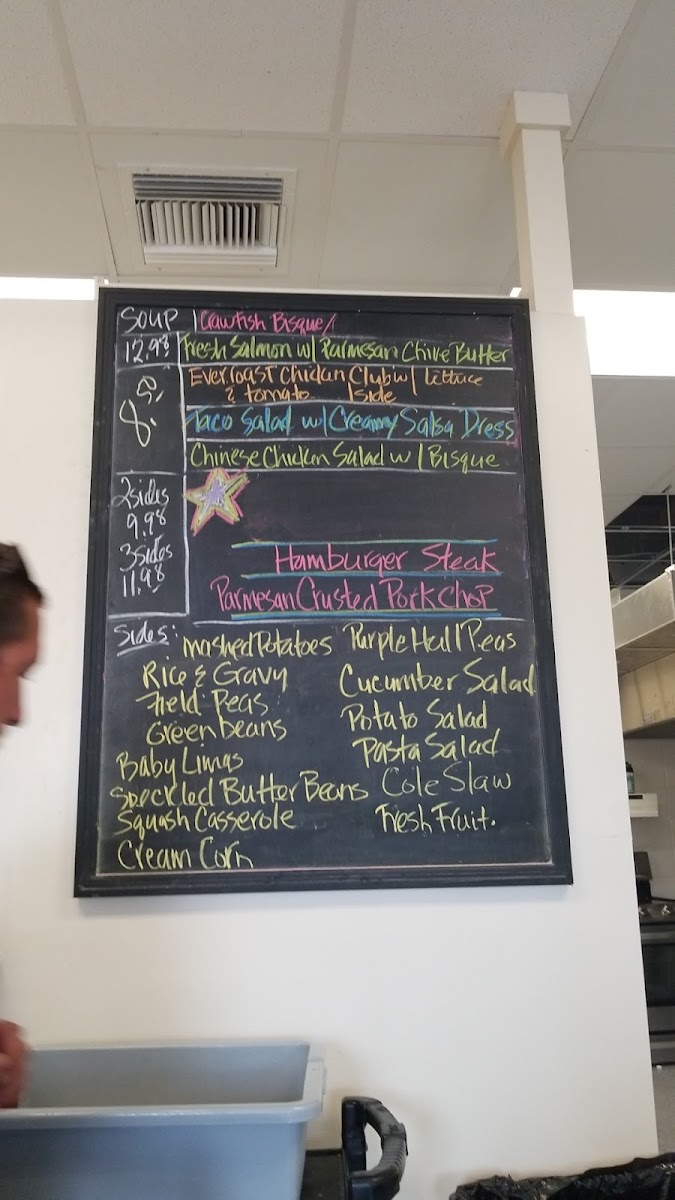 Soup | Crawfish Bisque /
12.98 Fresh Salmon w/ Parmesan Chive Butter
Everroast Chicken Club w/ lettuce
& tomato 1 side
Taco Salad w/ Creamy Salsa Dress
Chinese Chicken Salad w/ Bisque
2 sides
9.98
3 sides
11.98
Hamburger Steak
Parmesan Crusted Pork Chop
Sides:
Mashed Potatoes
Rice & Gravy
Field Peas
Green beans
Baby Limas
Speckled Butter Beans
Squash Casserole
Cream Corn
Purple Hull Peas
Cucumber Salad
Potato Salad
Pasta Salad
Cole Slaw
Fresh Fruit.